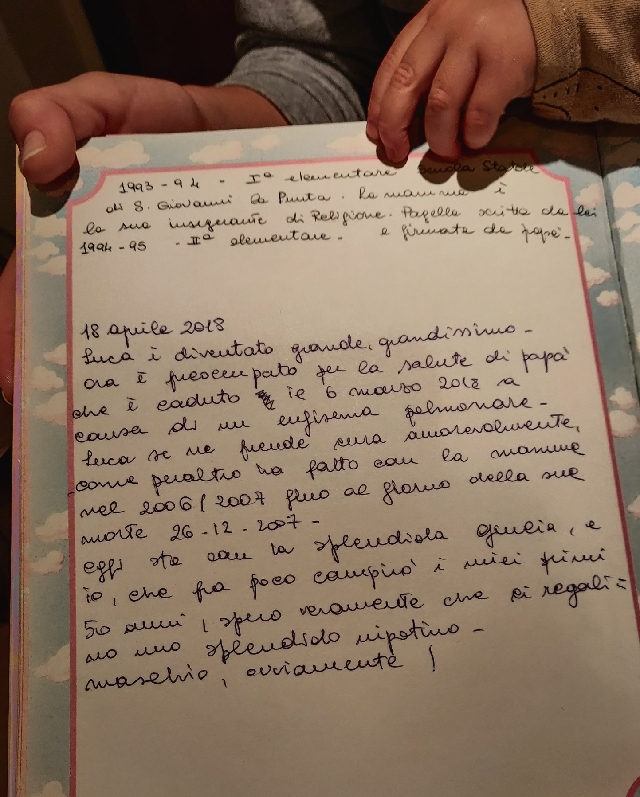 1993-94 - Iª elementare Scuola Statale
di S. Giovanni La Punta. La mamma è
la sua insegnante di Religione. Pagella scritta da lei
1994-95 - IIª elementare. e firmata da papà.
18 aprile 2018
Luca è diventato grande, grandissimo -
ora è preoccupato per la salute di papà
che è caduto ie 6 marzo 2018 a
causa di un enfisema polmonare -
Luca se ne prende cura amorevolmente,
come peraltro ha fatto con la mamma
nel 2006/2007 fino al giorno della sua
morte 26-12-2007 -
egli sta con la splendida Giulia, e
io, che fra poco compirò i miei primi
50 anni, spero veramente che ci regali=
no uno splendido nipotino -
maschio, ovviamente!